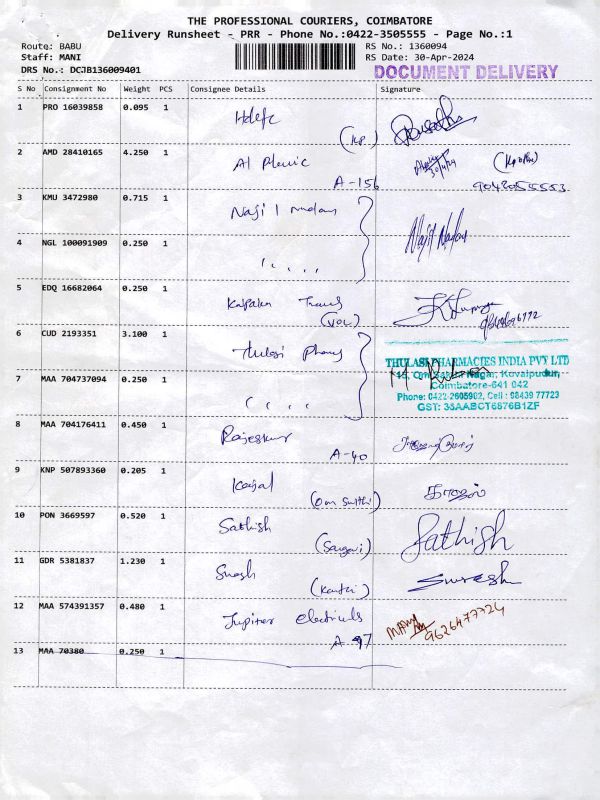 THE PROFESSIONAL COURIERS, COIMBATORE
Delivery Runsheet - PRR - Phone No.:0422-3505555 - Page No.:1
Route: BABU
Staff: MANI
DRS No.: DCJB136009401
RS No.: 1360094
RS Date: 30-Apr-2024
DOCUMENT DELIVERY
S No Consignment No Weight PCS Consignee Details Signature
1 PRO 16039858 0.095 1 Hdefc (KP)
2 AMD 28410165 4.250 1 Al Plenic A-156 30/4/24 9042055553
3 KMU 3472980 0.715 1 Naji
4 NGL 100091909 0.250 1 Najil
5 EDQ 16682064 0.250 1 Kalpaka Trans (VOC)
6 CUD 2193351 3.100 1 Thulasi Phary
THULASI PHARMACIES INDIA PVT LTD
7 MAA 704737094 0.250 1
Coimbatore-641 042
Phone: 0422-2605902, Cell : 98439 77723
GST: 33AABCT6876B1ZF
8 MAA 704176411 0.450 1 Rajeskur A-40
9 KNP 507893360 0.205 1 Kajal காஜல்
10 PON 3669597 0.520 1 Sathish Sathish
11 GDR 5381837 1.230 1 Suresh
12 MAA 574391357 0.480 1 Jupiter electricals A-97 9626477724
13 MAA 70380 0.250 1